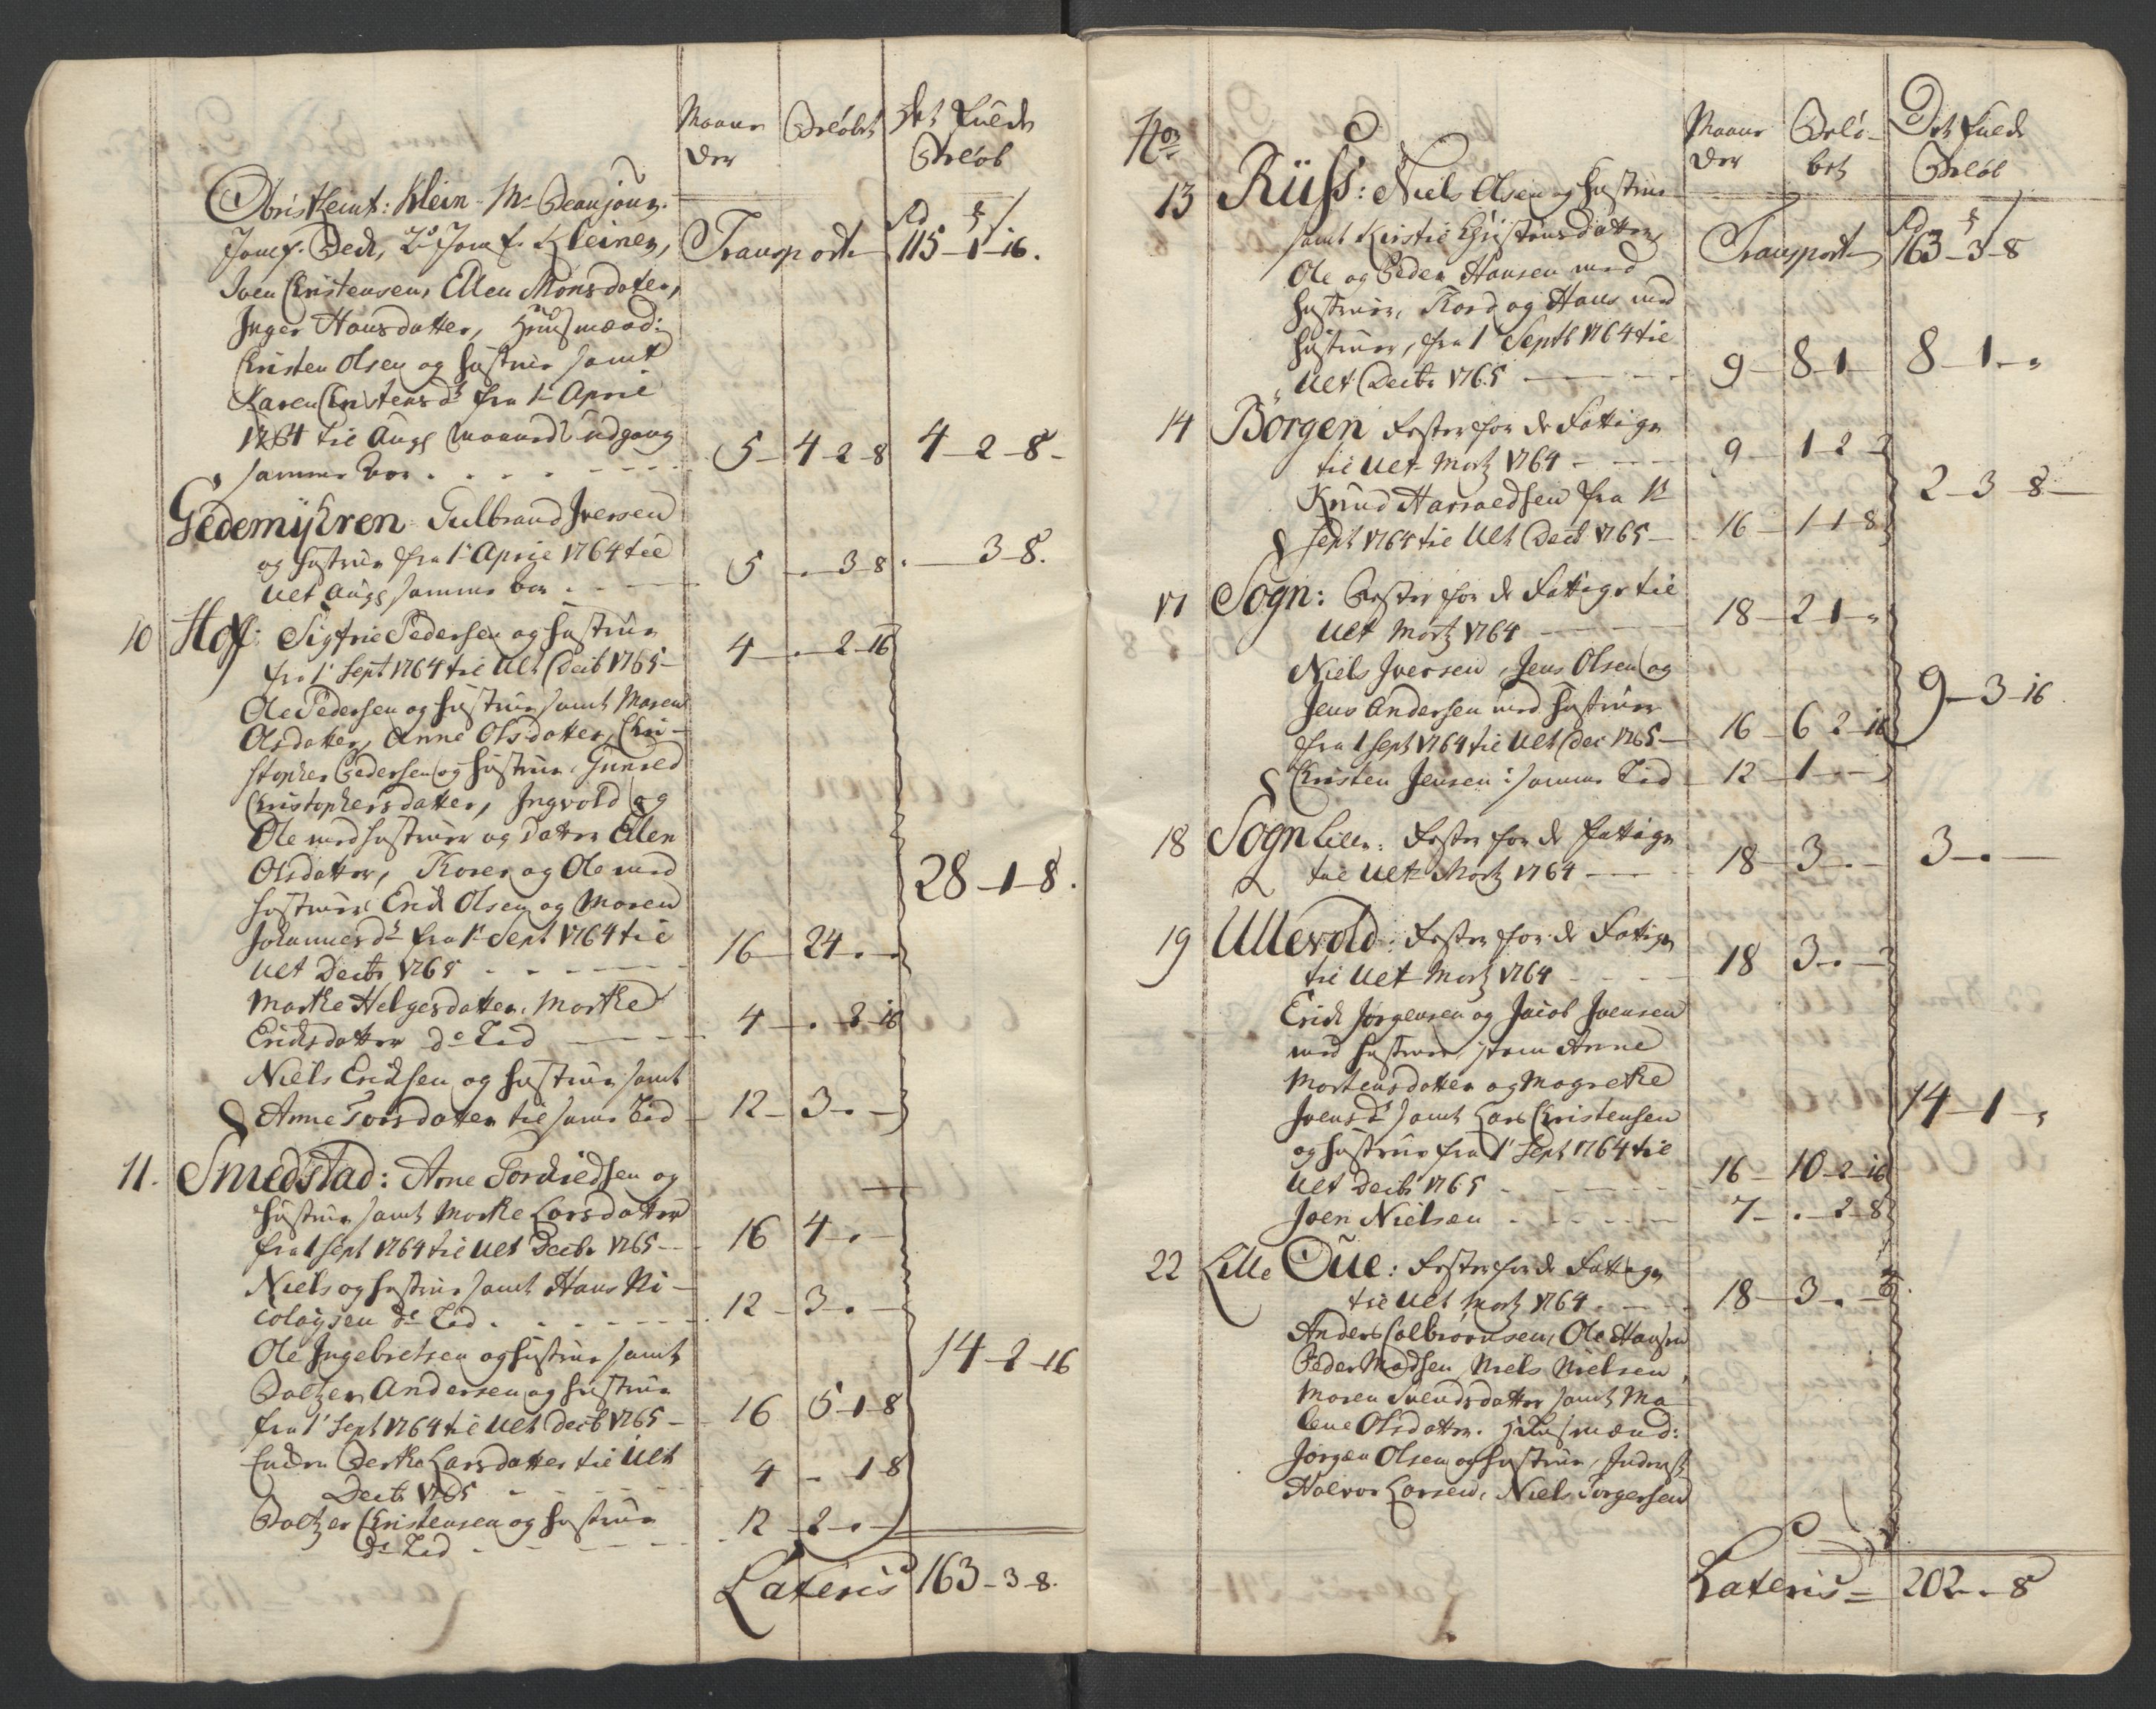 Maane
der
Beløbet
Det Fulde
Beløb
Obristleint: Klein Mr Beaujoun.
Jomf. Bede, 2de Jomf. Kleiner,
Transport 115-1-16.
Joen Christensen, Ellen Monsdater,
Inger Hansdatter, Huusmænd:
Christen Olsen og Hustrue samt
Karen Christensdr fra 1 April
1764 til Augs Maaneds Udgang
samme Aar 5 - 4-2-8 4-2-8
Gedemyhren Gulbrand Iversen
og Hustrue fra 1 April 1764 til
Ult Augs samme Aar 5 - 3-8 3-8.
10 Hoff: Sigfrie Pedersen og Hustrue
fra 1 Sept 1764 til Ult Decb 1765 4 - 2-16
Ole Pedersen og Hustrue samt Maren
Olsdatter, Anne Olsdatter, Chri-
stopher Pedersen og Hustrue Gunild
Christophersdatter, Ingvold og
Ole med Hustruer og Datter Ellen
Olsdatter, Thorer og Ole med
28-1-8.
Hustruer Erich Olsen og Maren
Johannesdr fra 1 Sept 1764 til
Ult Decbr 1765 16 24
Marthe Helgesdatter, Marthe
Erichsdatter do Tid 4 - 2-16
Niels Erichsen og Hustrue samt
Anne Torsdatter til samme Tid 12 - 3
11. Smedstad: Arne Torchiedsen og
Hustrue samt Marthe Larsdatter
fra 1 Sept 1764 til Ult Decbr 1765 16 4
Niels og Hustrue samt Hans Ni-
colaysen do Tid 12 - 3
Ole Ingebretsen og Hustrue samt
14-2-16
Baltzer Andersen og Hustrue
fra 1 Sept 1764 til Ult Decb 1765 16 5-1-8
Enken Berthe Larsdatter til Ult
Decbr 1765 4 - 1 8
Baltzer Christensen og Hustrue
do Tid 12 2
Lateris 163-3-8.
No
Maane
der
Belø-
bet
Det Fulde
Beløb
13 Rüss: Niels Olsen og Hustrue
samt Kirstie Christensdatter,
Transport 163-3-8
Ole og Peder Hansen med
Hustruer, Thord og Hans med
Hustruer, fra 1 Septb 1764 til
Ult Decbr 1765 9 - 8-1 8-1
14 Børgen Foster for de Fattige
til Ult Martz 1764 9 - 1-2
2-3-8
Knud Harraldsen fra 1
Sept 1764 til Ult Decb 1765 16 - 1-1-8
17 Sogn: Foster for de Fattige til
Ult Martz 1764 18 - 2-1
Niels Iversen, Jens Olsen og
9-3-16
Jens Andersen med Hustruer
fra 1 Sept 1764 til Ult Dec 1765 16 - 6-2-16
Christen Jensen i samme Tid 12 - 1
18 Sogn Lille: Foster for de Fattige
til Ult Martz 1764 18 - 3 3
19 Ullevold: Foster for de Fattige
til Ult Martz 1764 18 3
Erich Jørgensen og Jacob Joensen
med Hustruer, item Anne
Mortensdatter og Magrethe
Joensdr samt Lars Christensen
14-1
og Hustrue fra 1 Sept 1764 til
Ult Decbr 1765 16 - 10-2-16
Joen Nielsen 7 - 2-8
22 Lille Øue: Foster for de Fattige
til Ult Martz 1764 18 - 3
Anders Colbiørnsen, Ole Hansen
Peder Madsen, Niels Nielsen,
Maren Svendsdatter samt Ma-
lene Olsdatter. Huusmænd:
Jørgen Olsen og Hustrue,
Halvor Larsen, Niels Torgersen
Lateris 202-8